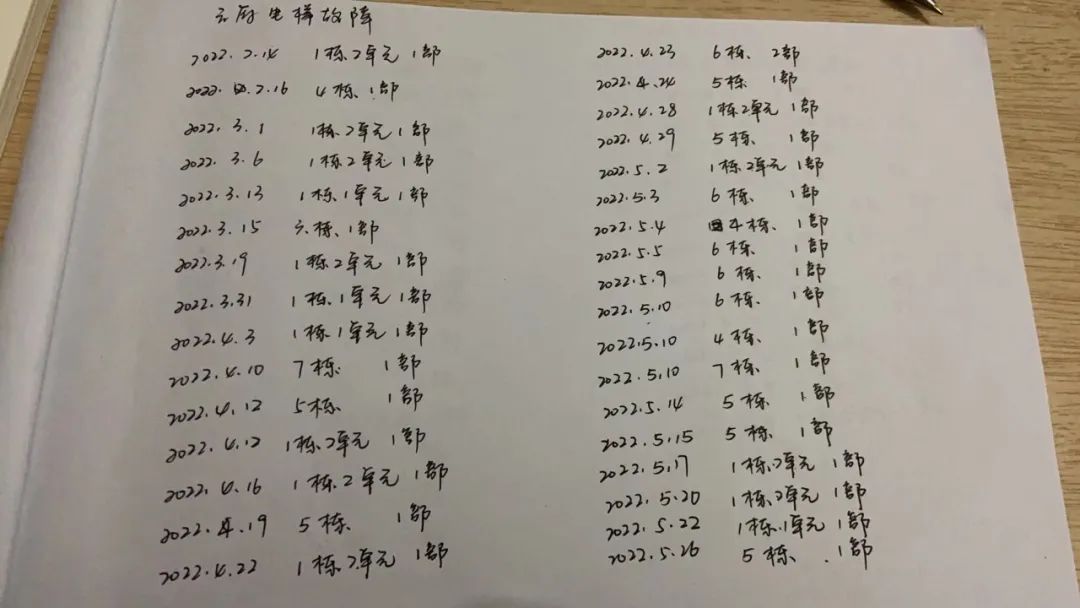 电梯故障
2022.2.14 1栋2单元1部
2022.2.16 4栋1部
2022.3.1 1栋2单元1部
2022.3.6 1栋2单元1部
2022.3.13 1栋1单元1部
2022.3.15 栋1部
2022.3.19 1栋2单元1部
2022.3.31 1栋1单元1部
2022.4.3 1栋1单元1部
2022.4.10 7栋 1部
2022.4.12 5栋 1部
2022.4.12 1栋2单元1部
2022.4.16 1栋2单元1部
2022.4.19 5栋 1部
2022.4.22 1栋2单元1部
2022.4.23 6栋 2部
2022.4.24 5栋 1部
2022.4.28 1栋2单元1部
2022.4.29 5栋 1部
2022.5.2 1栋2单元1部
2022.5.3 6栋 1部
2022.5.4 4栋 1部
2022.5.5 6栋 1部
2022.5.9 6栋 1部
2022.5.10 6栋 1部
2022.5.10 4栋 1部
2022.5.10 7栋 1部
2022.5.14 5栋 1部
2022.5.15 5栋 1部
2022.5.17 1栋2单元1部
2022.5.20 1栋2单元1部
2022.5.22 1栋1单元1部
2022.5.26 5栋 1部